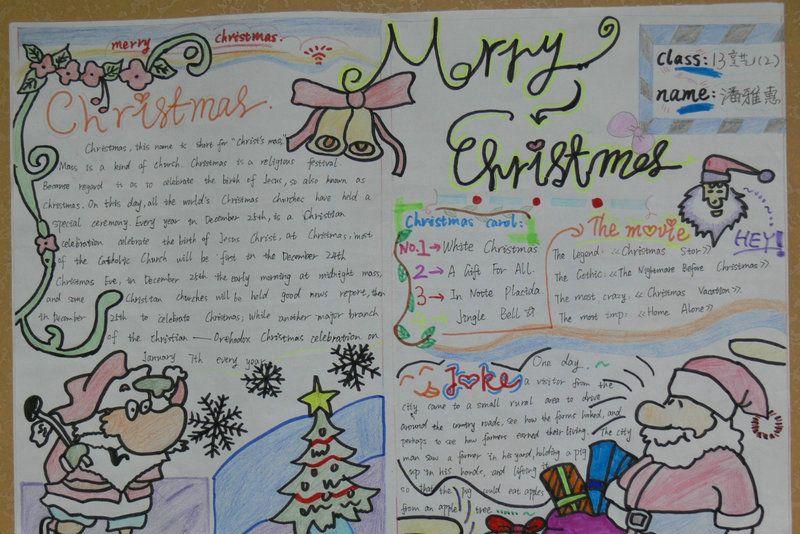 merry christmas.
Christmas.
Christmas, this name is short for "Christ's mas,"
Mass is a kind of church. Christmas is a religious festival.
Because regard it as to celebrate the birth of Jesus, so also known as
christmas. On this day, all the world's Christmas churches have held a
special ceremony. Every year in December 25th, is a Christian
celebration celebrate the birth of Jesus Christ, at Christmas. most
of the Catholic Church will be first in the December 24th
Christmas Eve, in December 25th the early morning at midnight mass,
and some Christian churches will be held good news report, then
in December 25th to celebrate Christmas; While another major branch
of the christian — Orthodox Christmas celebration on
January 7th every year.
Merry
Christmas
class: 13 (2)
name: 潘雅惠
HEY!
Christmas carol:
No.1→White Christmas
2→A Gift For All
3→In Notte Placida
4→Jingle Bell☆
The movie
The Legend: 《Christmas Star》
The Gothic: 《The Nightmare Before Christmas》
The most crazy: 《Christmas Vacation》
The most imp: 《Home Alone》
Joke
One day, ~
a visitor from the
city came to a small rural area to drive
around the country roads, see how the farms looked, and
perhaps to see how farmers earned their living. The city
man saw a farmer in his yard, holding a pig
up in his hands, and lifting it
so that the pig could eat apples
from an apple tree